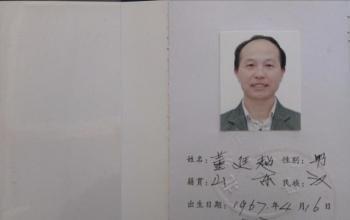 姓名：董廷超 性别：男
籍贯：山东 民族：汉
出生日期：1967年4月16日